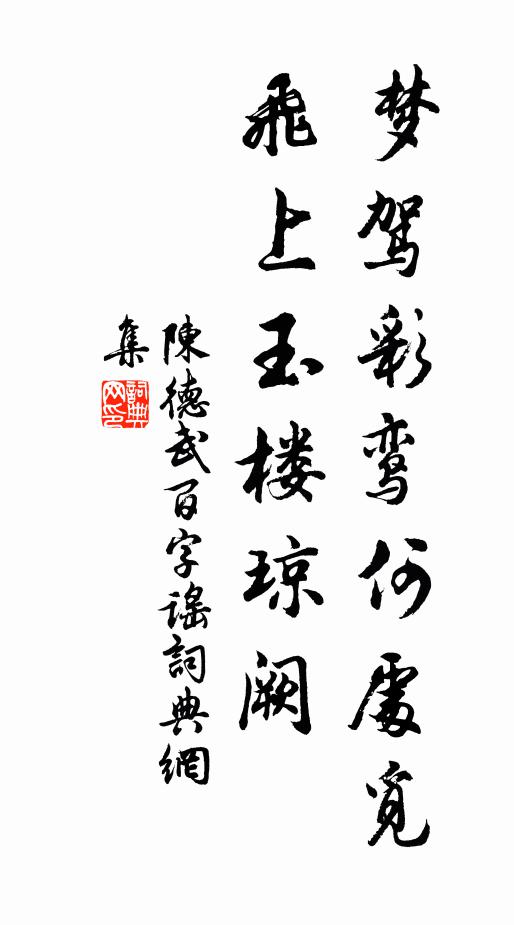 梦驾彩鸾何處覓
飛上玉楼琼阙
陳德武百字謠詞典網
集
詞典网印